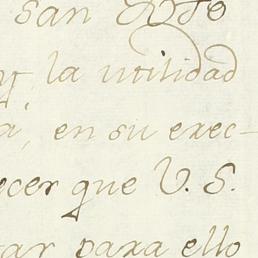 san
y la utilidad
a, en su exec-
ecer que V. S.
tar para ello